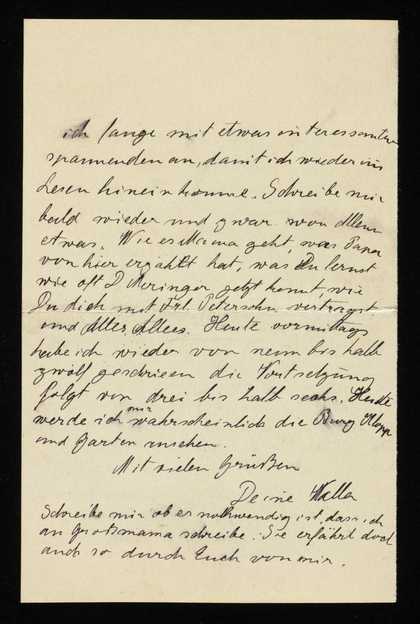 ich fange mit etwas interessantem
spannenden an, damit ich wieder ins
Lesen hineinkomme. Schreibe mir
bald wieder und zwar von Allem
etwas. Wie es Mama geht, was Papa
von hier erzählt hat, was Du lernst
wie oft D Meringer jetzt kommt, wie
Du dich mit Frl. Petersohn verträgst
und Alles Alles. Heute vormittags
habe ich wieder von neun bis halb
zwölf geschrieen die Fortsetzung
folgt von drei bis halb sechs. Heute
werde ich mir wahrscheinlich die Burg Klopp
und Garten ansehen.
Mit vielen Grüßen
Deine
Schreibe mir ob es nothwendig ist, dass ich
an Grossmama schreibe. Sie erfährt doch
auch so durch Euch von mir.